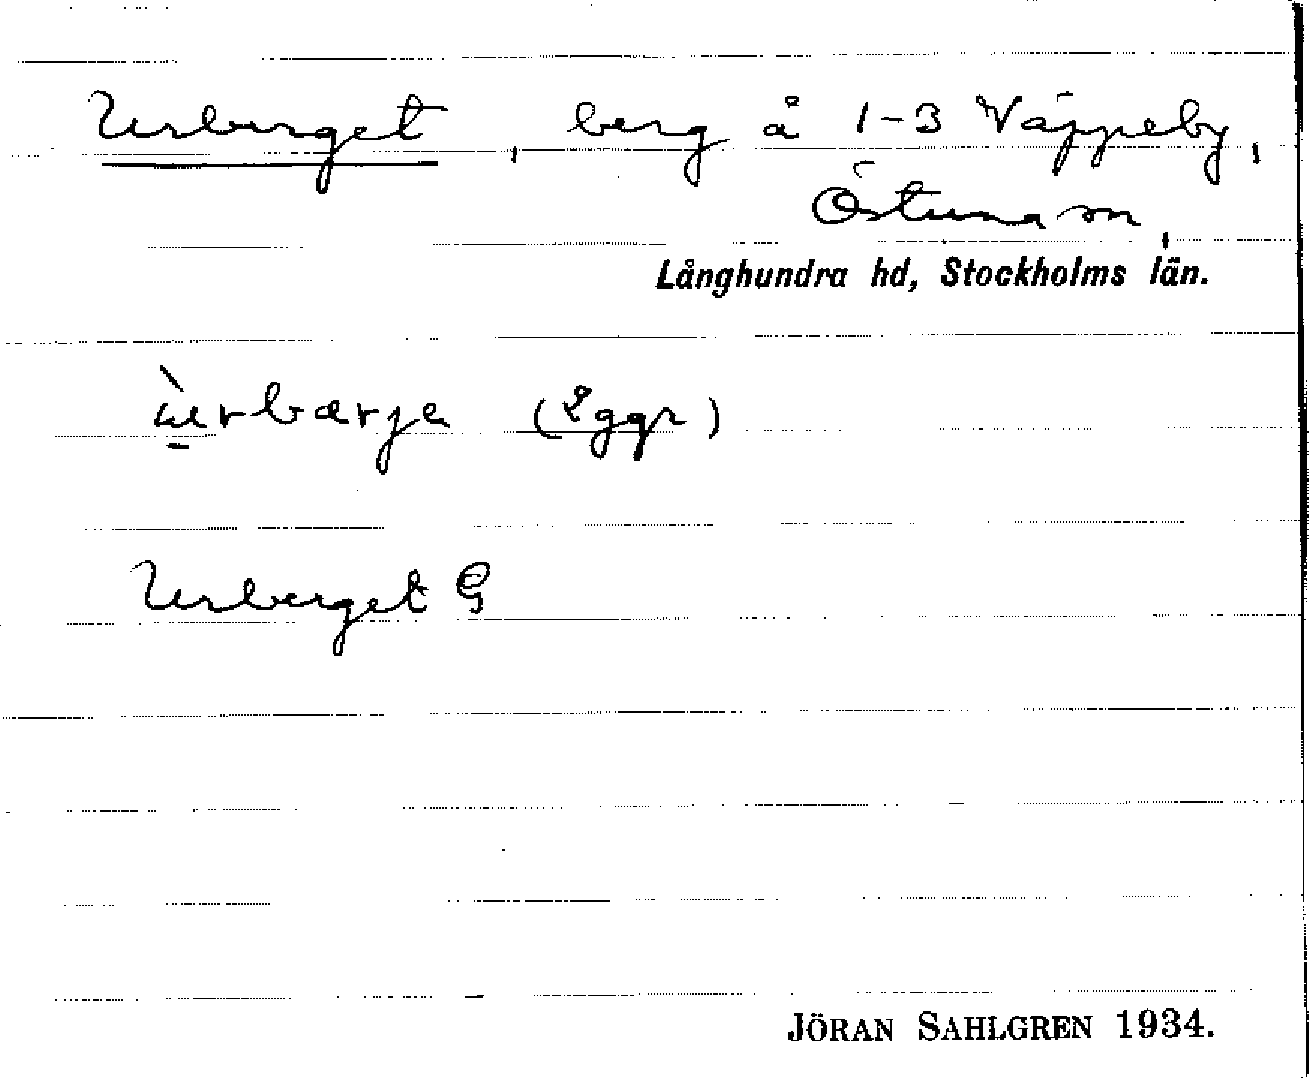 Urberget, berg å 1-3 Väppeby,
Östuna sn,
Långhundra hd, Stockholms län.
ùrbærjɛ (2ggr)
Urberget G
JÖRAN SAHLGREN 1934.